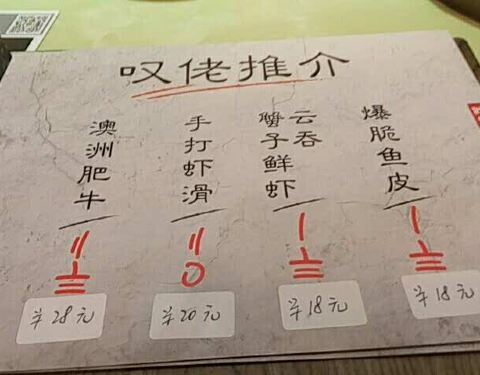 叹佬推介
澳洲肥牛
〢〨
¥28元
手打虾滑
〢〇
¥20元
蟹子鲜虾
云吞
〡〨
¥18元
爆脆鱼皮
〡〨
¥18元